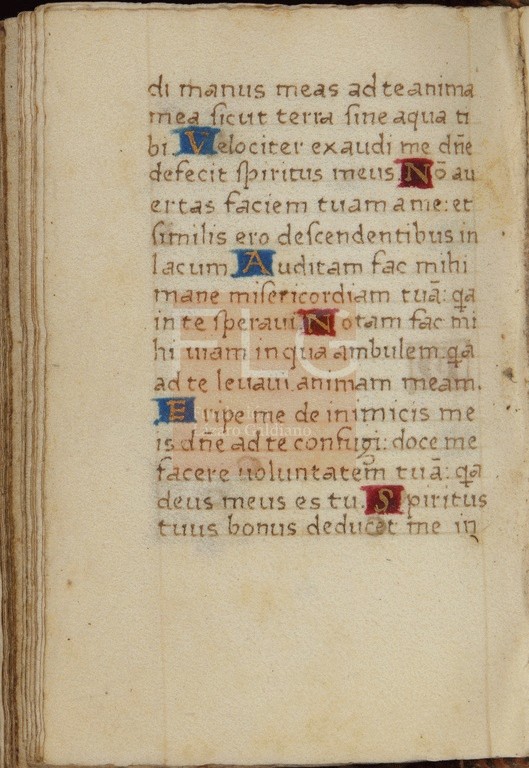 di manus meas ad te anima
mea sicut terra sine aqua ti
bi. Velociter exaudi me dn̄e
defecit spiritus meus. Nō au
ertas faciem tuam a me: et
similis ero descendentibus in
lacum. Auditam fac mihi
mane misericordiam tuā: qa
in te speraui. Notam fac mi
hi uiam in qua ambulem. qa
ad te leuaui animam meam.
Eripe me de inimicis me
is dn̄e ad te confugi: doce me
facere uoluntatem tuā: qa
deus meus es tu. Spiritus
tuus bonus deducet me in
FLG
Lázaro Galdiano